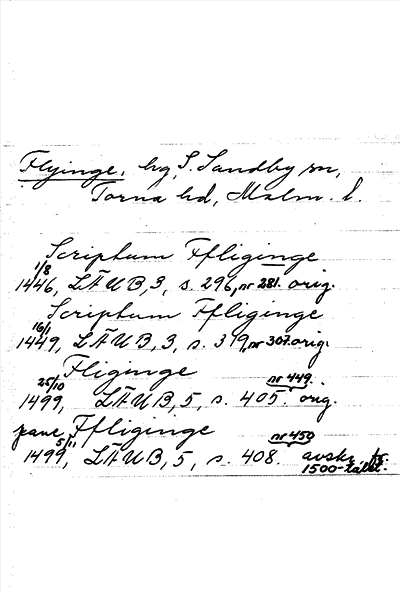 Flyinge, hg, S. Sandby sn,
Torna hd, Malm. l.
Scriptum Ffliginge
1/8
1446, LÄUB, 3, s. 296, nr 281. orig.
Scriptum Ffliginge
16/1
1449, LÄUB, 3, s. 319, nr 307. orig.
Fliginge
25/10 nr 449.
1499, LÄUB, 5, s. 405. orig.
pane Ffliginge
5/11 nr 450
1499, LÄUB, 5, s. 408. avskr. fr.
1500-talet.